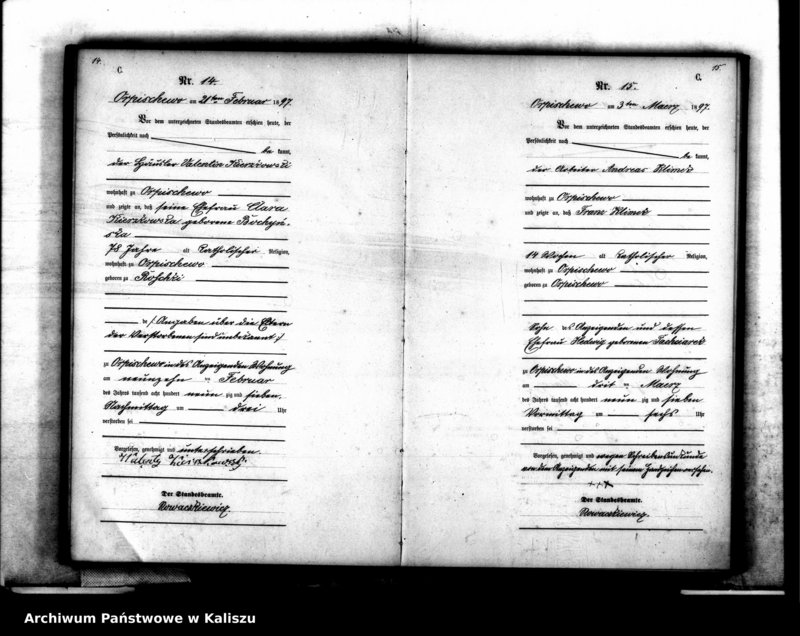 14.
C.
Nr. 14.
Orpischewo am 21ten Februar 1897.
Vor dem unterzeichneten Standesbeamten erschien heute, der
Persönlichkeit nach
be kannt,
der Häusler Valentin Kierzkowski
wohnhaft zu Orpischewo
und zeigte an, daß seine Ehefrau Clara
Kierzkowska geborene
ska
78 Jahre alt katholischer Religion,
wohnhaft zu Orpischewo
geboren zu
de /: Angaben über die Eltern
der Verstorbenen sind unbekannt :/
zu Orpischewo in des Anzeigenden Wohnung
am neunzehn ten Februar
des Jahres tausend acht hundert neun zig und sieben
Nachmittag um drei Uhr
verstorben sei
Vorgelesen, genehmigt und unterschrieben.
Der Standesbeamte.
Nowaczkiewicz.
15.
C.
Nr. 15.
Orpischewo am 3ten Maerz 1897.
Vor dem unterzeichneten Standesbeamten erschien heute, der
Persönlichkeit nach
be kannt,
der Arbeiter Andreas Klimek
wohnhaft zu Orpischewo
und zeigte an, daß Franz Klimek
14 Wochen alt katholischer Religion,
wohnhaft zu Orpischewo
geboren zu Orpischewo
Sohn des Anzeigenden und dessen
Ehefrau Hedwig geborenen
zu Orpischewo in des Anzeigenden Wohnung
am drit ten Maerz
des Jahres tausend acht hundert neun zig und sieben
Vormittag um sechs Uhr
verstorben sei
Vorgelesen, genehmigt und wegen Schreibensunkunde
von dem Anzeigenden mit seinem Handzeichen versehen.
+++
Der Standesbeamte.
Nowaczkiewicz.
Archiwum Państwowe w Kaliszu